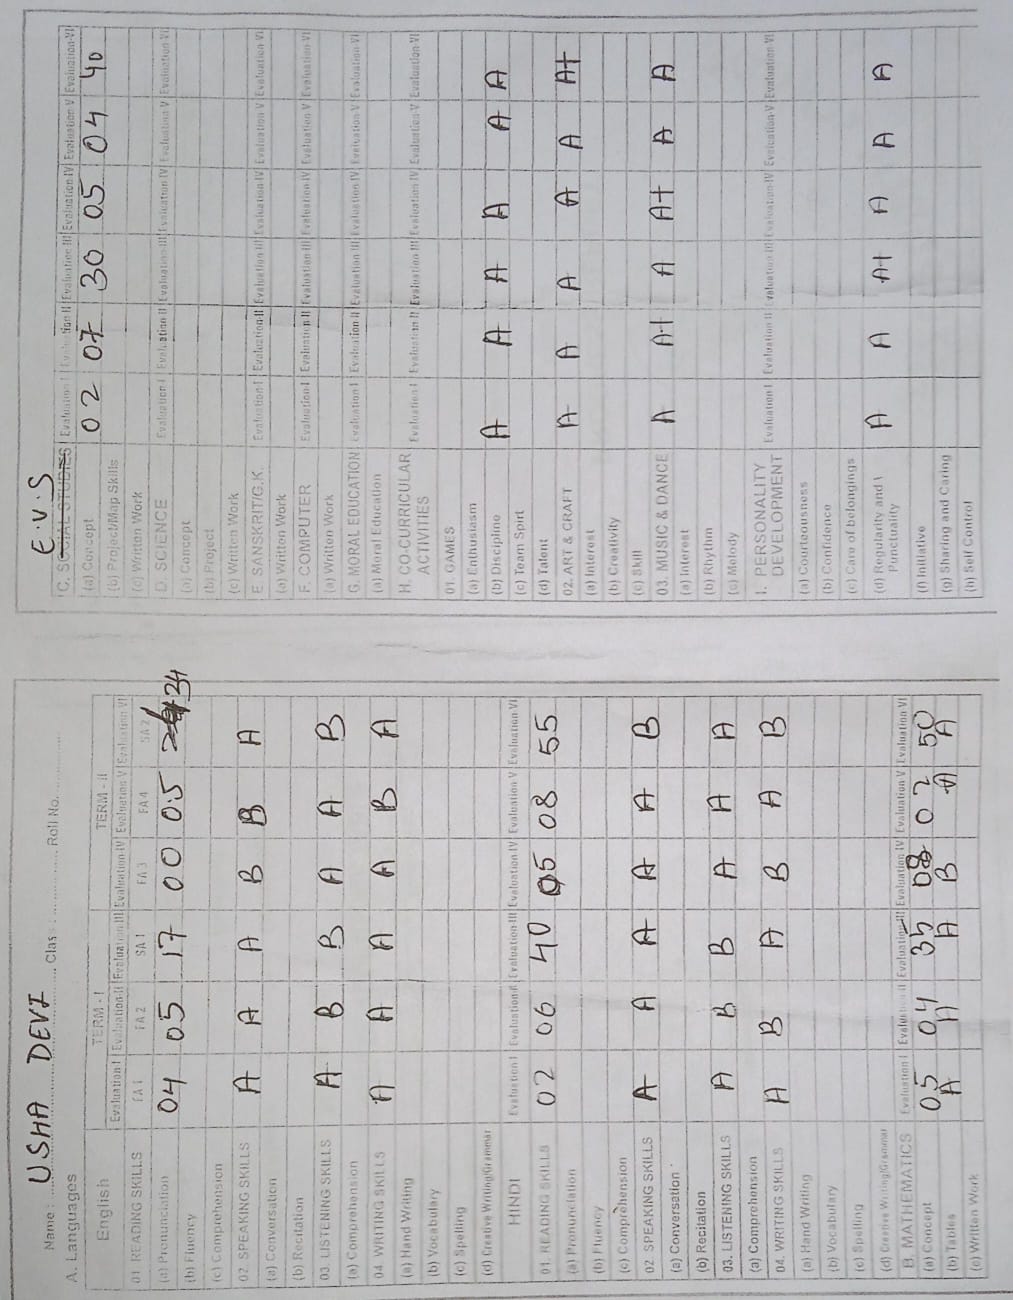 Name : USHA DEVI Class : Roll No.
A. Languages
English TERM - I TERM - II
Evaluation-I Evaluation-II Evaluation-III Evaluation-IV Evaluation V Evaluation VI
01 READING SKILLS FA 1 FA 2 SA 1 FA 3 FA 4 SA 2
(a) Pronunciation 04 05 17 00 0.5 34
(b) Fluency
(c) Comprehension
02. SPEAKING SKILLS A A A B B A
(a) Conversation
(b) Recitation
03. LISTENING SKILLS A B B A A B
(a) Comprehension
04 WRITING SKILLS A A A A B A
(a) Hand Writing
(b) Vocabulary
(c) Spelling
(d) Creative Writing/Grammar
HINDI Evaluation I Evaluation-II Evaluation-III Evaluation IV Evaluation V Evaluation VI
01. READING SKILLS 02 06 40 05 08 55
(a) Pronunciation
(b) Fluency
(c) Comprehension
02 SPEAKING SKILLS A A A A A B
(a) Conversation
(b) Recitation
03. LISTENING SKILLS A B B A A A
(a) Comprehension
04. WRITING SKILLS A B A B A B
(a) Hand Writing
(b) Vocabulary
(c) Spelling
(d) Creative Writing/Grammar
B. MATHEMATICS Evaluation I Evaluation II Evaluation-III Evaluation IV Evaluation V Evaluation VI
(a) Concept 05 04 35 08 02 50
(b) Tables A A A B A A
(c) Written Work
E.V.S
C. SOCIAL STUDIES Evaluation I Evaluation II Evaluation III Evaluation-IV Evaluation-V Evaluation-VI
(a) Concept 02 07 30 05 04 40
(b) Project/Map Skills
(c) Written Work
D. SCIENCE Evaluation I Evaluation II Evaluation III Evaluation IV Evaluation V Evaluation VI
(a) Concept
(b) Project
(c) Written Work
E. SANSKRIT/G.K. Evaluation-I Evaluation-II Evaluation III Evaluation-IV Evaluation V Evaluation-VI
(a) Written Work
F. COMPUTER Evaluation-I Evaluation-II Evaluation III Evaluation-IV Evaluation V Evaluation VI
(a) Written Work
G. MORAL EDUCATION Evaluation I Evaluation II Evaluation III Evaluation IV Evaluation V Evaluation VI
(a) Moral Education
H. CO-CURRICULAR Evaluation I Evaluation II Evaluation III Evaluation IV Evaluation-V Evaluation VI
ACTIVITIES
01. GAMES
(a) Enthusiasm
(b) Discipline A A A A A A
(c) Team Spirt
(d) Talent
02. ART & CRAFT A A A A A A+
(a) Interest
(b) Creativity
(c) Skill
03. MUSIC & DANCE A A+ A A+ A A
(a) Interest
(b) Rhythm
(c) Melody
I. PERSONALITY Evaluation I Evaluation II Evaluation III Evaluation-IV Evaluation-V Evaluation VI
DEVELOPMENT
(a) Courteousness
(b) Confidence
(c) Care of belongings
(d) Regularity and \ A A A+ A A A
Punctuality
(f) Initiative
(g) Sharing and Caring
(h) Self Control